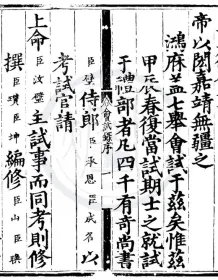 帝以闓嘉靖無疆之
鴻庥盖七舉會試于茲矣惟茲
甲辰春復當試期士之就試
于禮部者凡四千有奇尚書
臣璧侍郎臣承恩臣成名以
會試錄序 一
考試官請
上命臣汝璧主試事而同考則修
撰臣瓚臣坤編修臣山臣